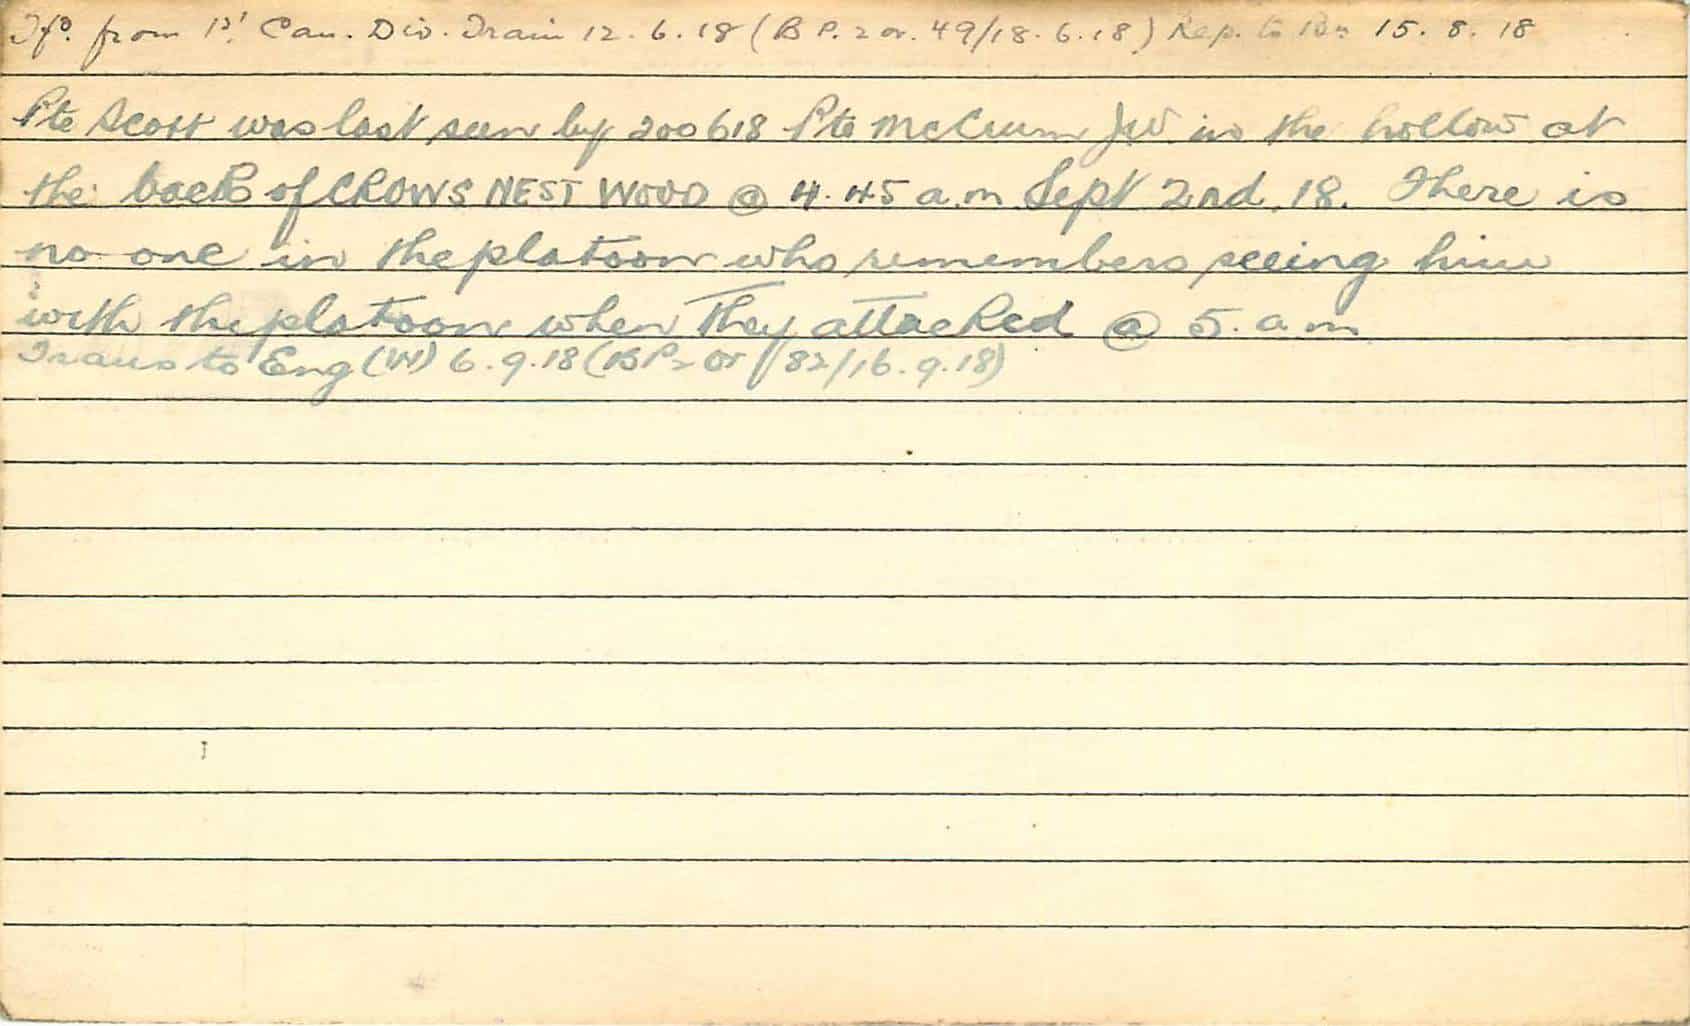 Tfd. from 1st Can. Div. Train 12.6.18 (B P. 2 or. 49/18.6.18) Rep. to Bn 15.8.18
Pte Scott was last seen by 200618 Pte McCrum JW in the hollow at
the back of CROWS NEST WOOD @ 4.45 a.m Sept 2nd. 18. There is
no one in the platoon who remembers seeing him
with the platoon when They attacked @ 5. a m
Trans to Eng (W) 6.9.18 (B P 2 or 82/16.9.18)